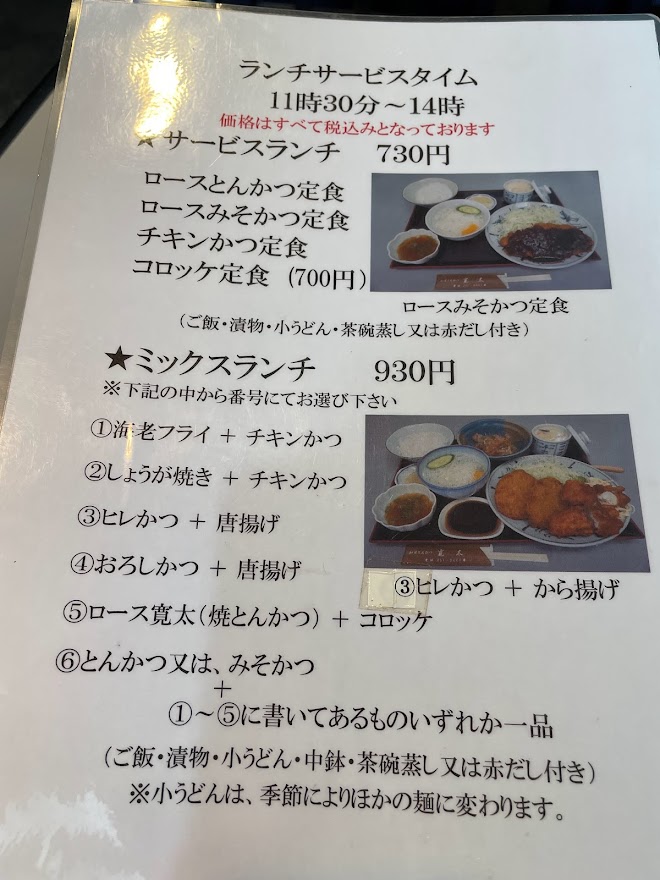 ランチサービスタイム
11時30分～14時
価格はすべて税込みとなっております
★サービスランチ 730円
ロースとんかつ定食
ロースみそかつ定食
チキンかつ定食
コロッケ定食 (700円)
ロースみそかつ定食
(ご飯・漬物・小うどん・茶碗蒸し又は赤だし付き)
★ミックスランチ 930円
※下記の中から番号にてお選び下さい
①海老フライ + チキンかつ
②しょうが焼き + チキンかつ
③ヒレかつ + 唐揚げ
④おろしかつ + 唐揚げ
③ヒレかつ + から揚げ
⑤ロース寛太(焼とんかつ) + コロッケ
⑥とんかつ又は、みそかつ
+
①～⑤に書いてあるものいずれか一品
(ご飯・漬物・小うどん・中鉢・茶碗蒸し又は赤だし付き)
※小うどんは、季節によりほかの麺に変わります。